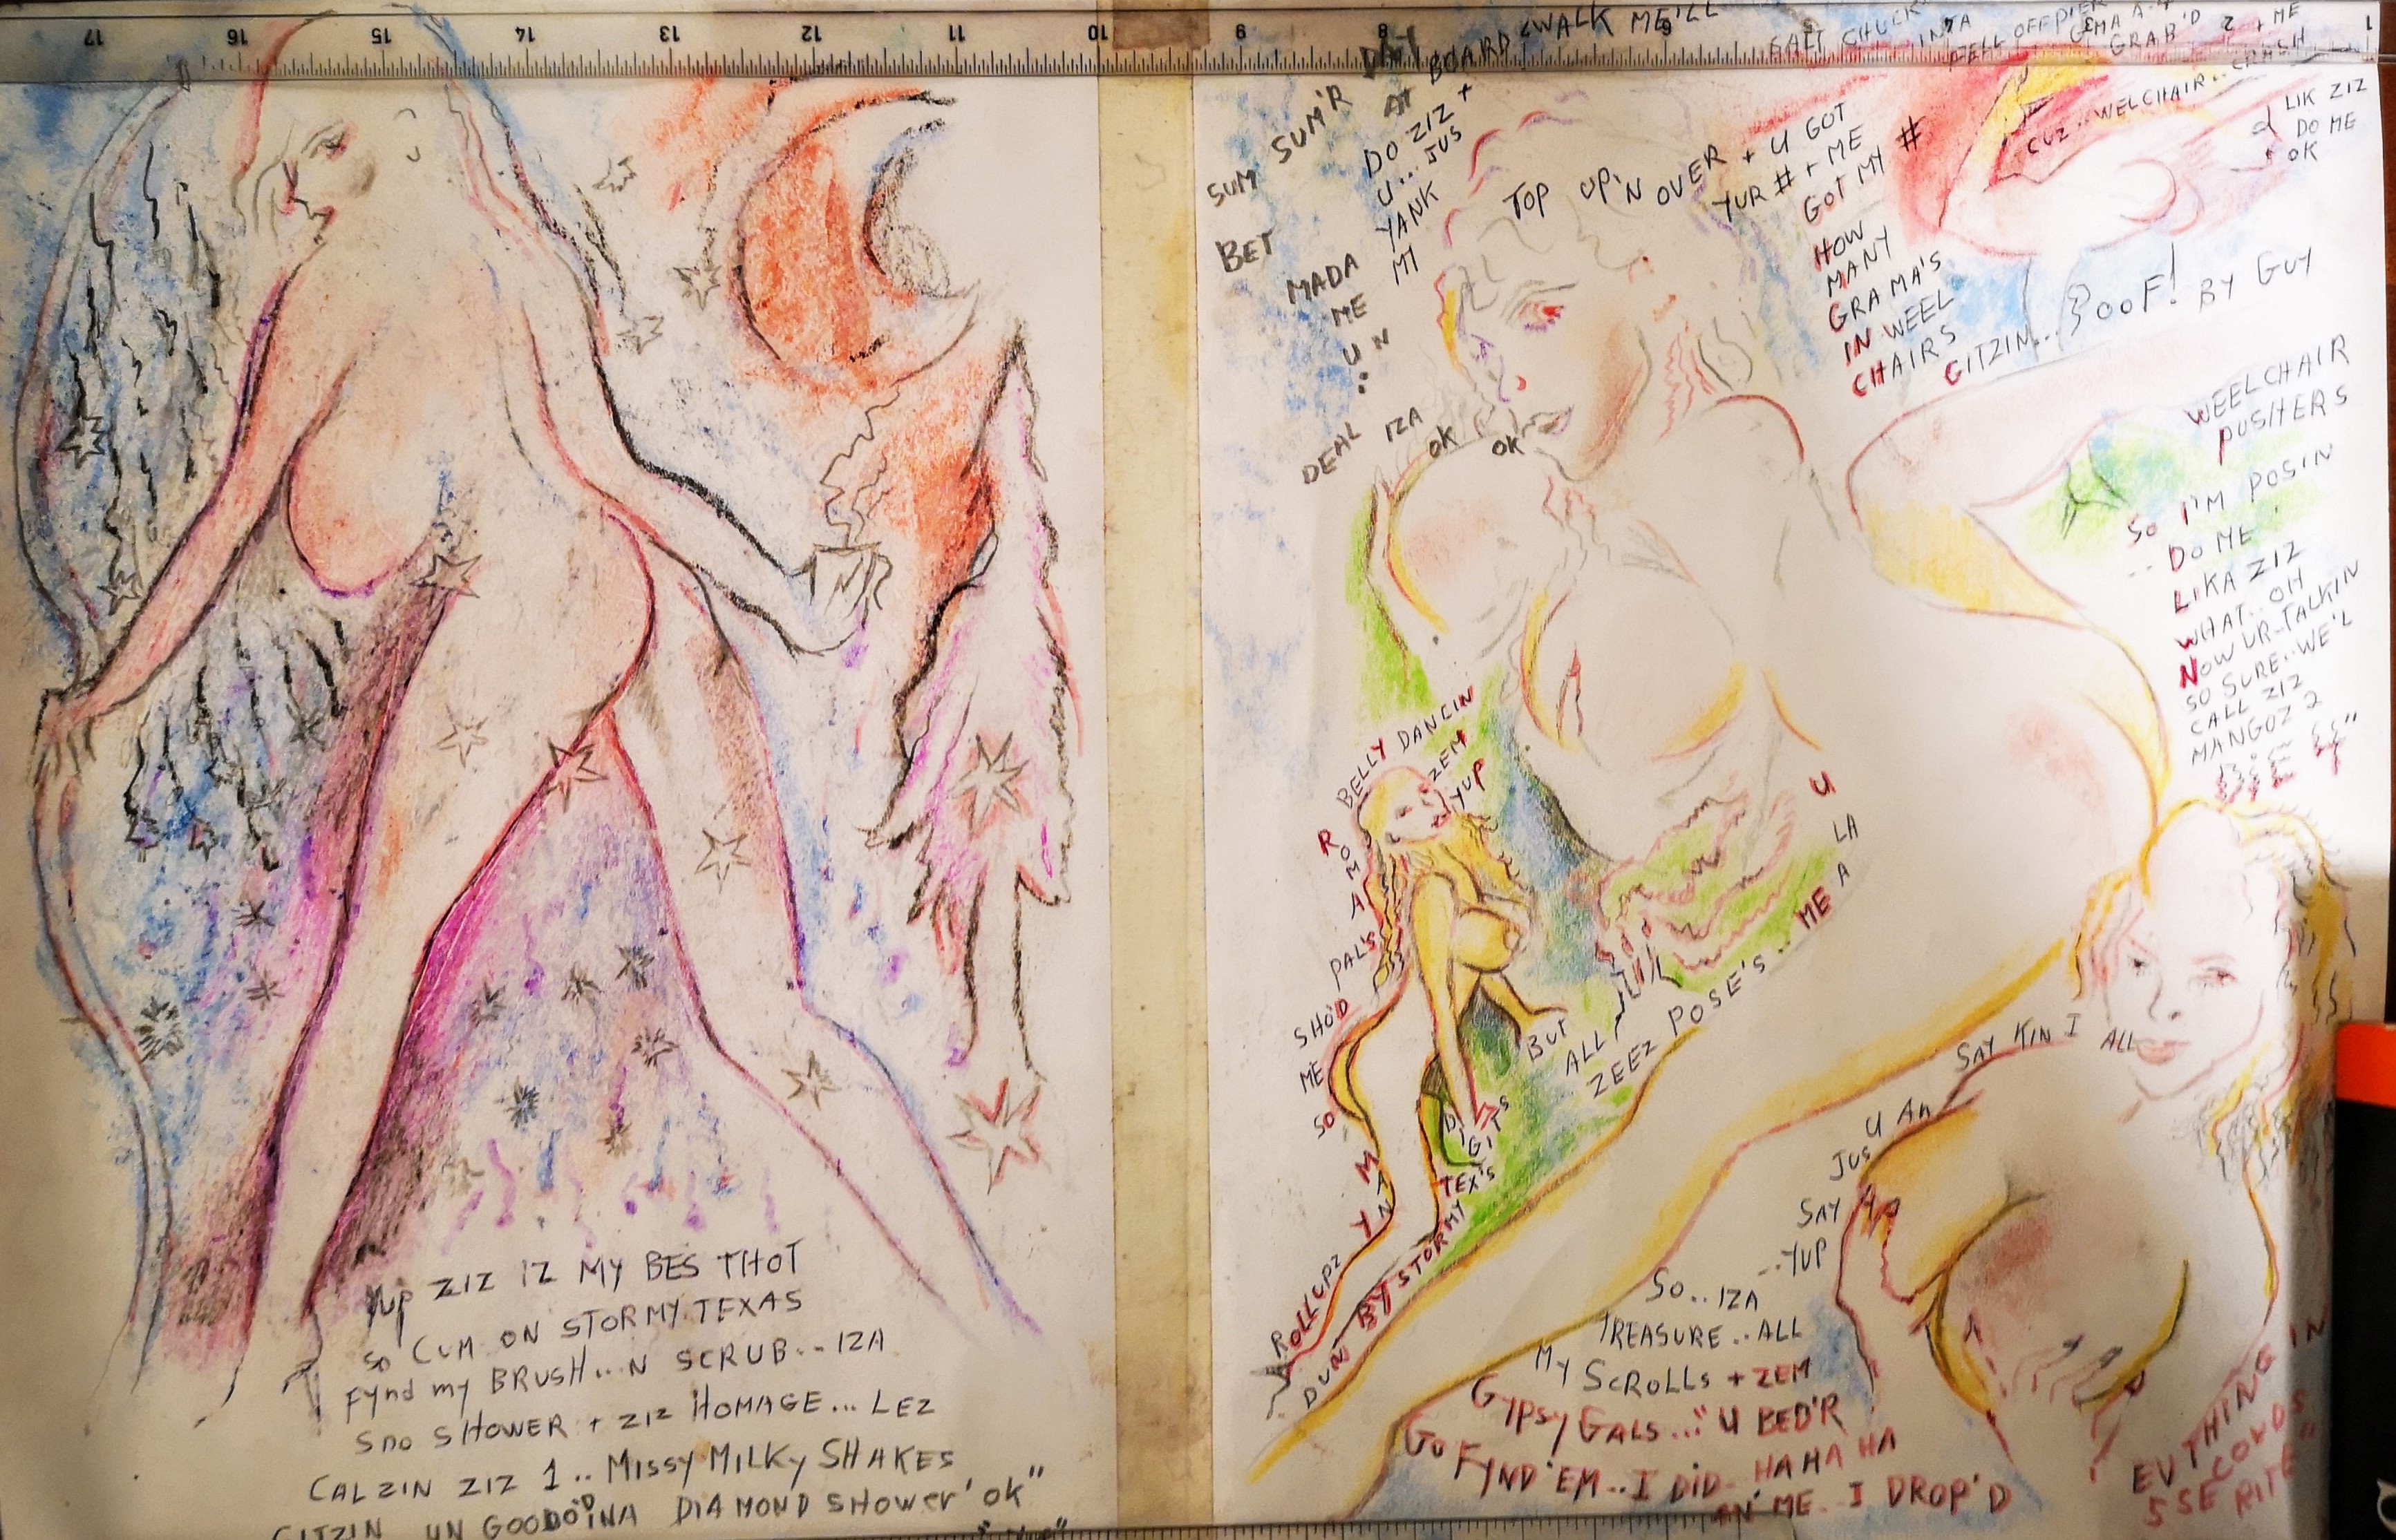 17 16 15 14 13 12 11 10 9 8 6 5 3 2 1
YUP ZIZ IZ MY BES THOT
SO CUM ON STORMY TEXAS
FYND MY BRUSH... N SCRUB... IZA
SNO SHOWER + ZIZ HOMAGE... LEZ
CALZIN ZIZ 1.. MISSY MILKY SHAKES
GITZIN UN GOODO'D INA DIAMOND SHOWER' OK"
SUM SUM'R DAY
AT BOARD WALK ME'LL
BET
DO ZIZ +
U... JUS
YANK
MY
TOP UP'N OVER + U GOT
YUR # + ME
GOT MY #
MADA
ME
U N
DEAL IZA
OK OK
HOW
MANY
GRAMA'S
IN WEEL
CHAIRS
GITZIN... POOF! BY GUY
SALT CHUCK
INTA
FELL OFF PIER
GRAB'D
+ ME
CUZ.. WELCHAIR.. CRASH
LIK ZIZ
DO ME
OK
WEELCHAIR
PUSHERS
SO I'M POSIN
.. DO ME
LIKA ZIZ
WHAT.. OH
NOW UR-TALKIN
SO SURE.. WE'L
CALL ZIZ
MANGOZ 2
DIE 4"
BELLY DANCIN
ZEM
YUP
ROMA
PAL'S
SHO'D
ME
SO
MANY
ROLLUPZ
BUT
ALL
ZEEZ POSE'S... ME A LA U
DIGITS
TEX'S
DUN BY STORMY
SAY KIN I ALL
U AN
JUS
SAY
..YUP
SO.. IZA
TREASURE.. ALL
MY SCROLLS + ZEM
GYPSY GALS..." U BED'R
GO FYND 'EM.. I DID.. HA HA HA
AN' ME.. I DROP'D
EVTHING IN
5 SECONDS
RITE"